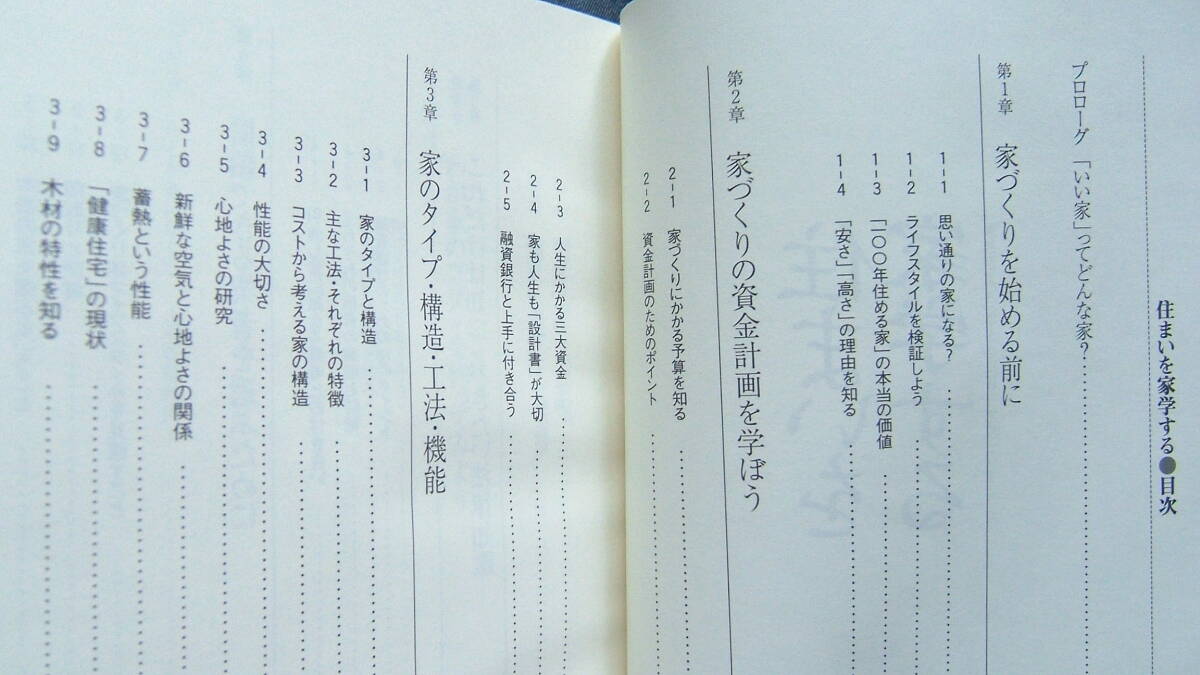 住まいを家学する●目次
プロローグ 「いい家」ってどんな家？
第1章 家づくりを始める前に
1-1 思い通りの家になる？
1-2 ライフスタイルを検証しよう
1-3 「一〇〇年住める家」の本当の価値
1-4 「安さ」「高さ」の理由を知る
第2章 家づくりの資金計画を学ぼう
2-1 家づくりにかかる予算を知る
2-2 資金計画のためのポイント
2-3 人生にかかる三大資金
2-4 家も人生も「設計書」が大切
2-5 融資銀行と上手に付き合う
第3章 家のタイプ・構造・工法・機能
3-1 家のタイプと構造
3-2 主な工法・それぞれの特徴
3-3 コストから考える家の構造
3-4 性能の大切さ
3-5 心地よさの研究
3-6 新鮮な空気と心地よさの関係
3-7 蓄熱という性能
3-8 「健康住宅」の現状
3-9 木材の特性を知る